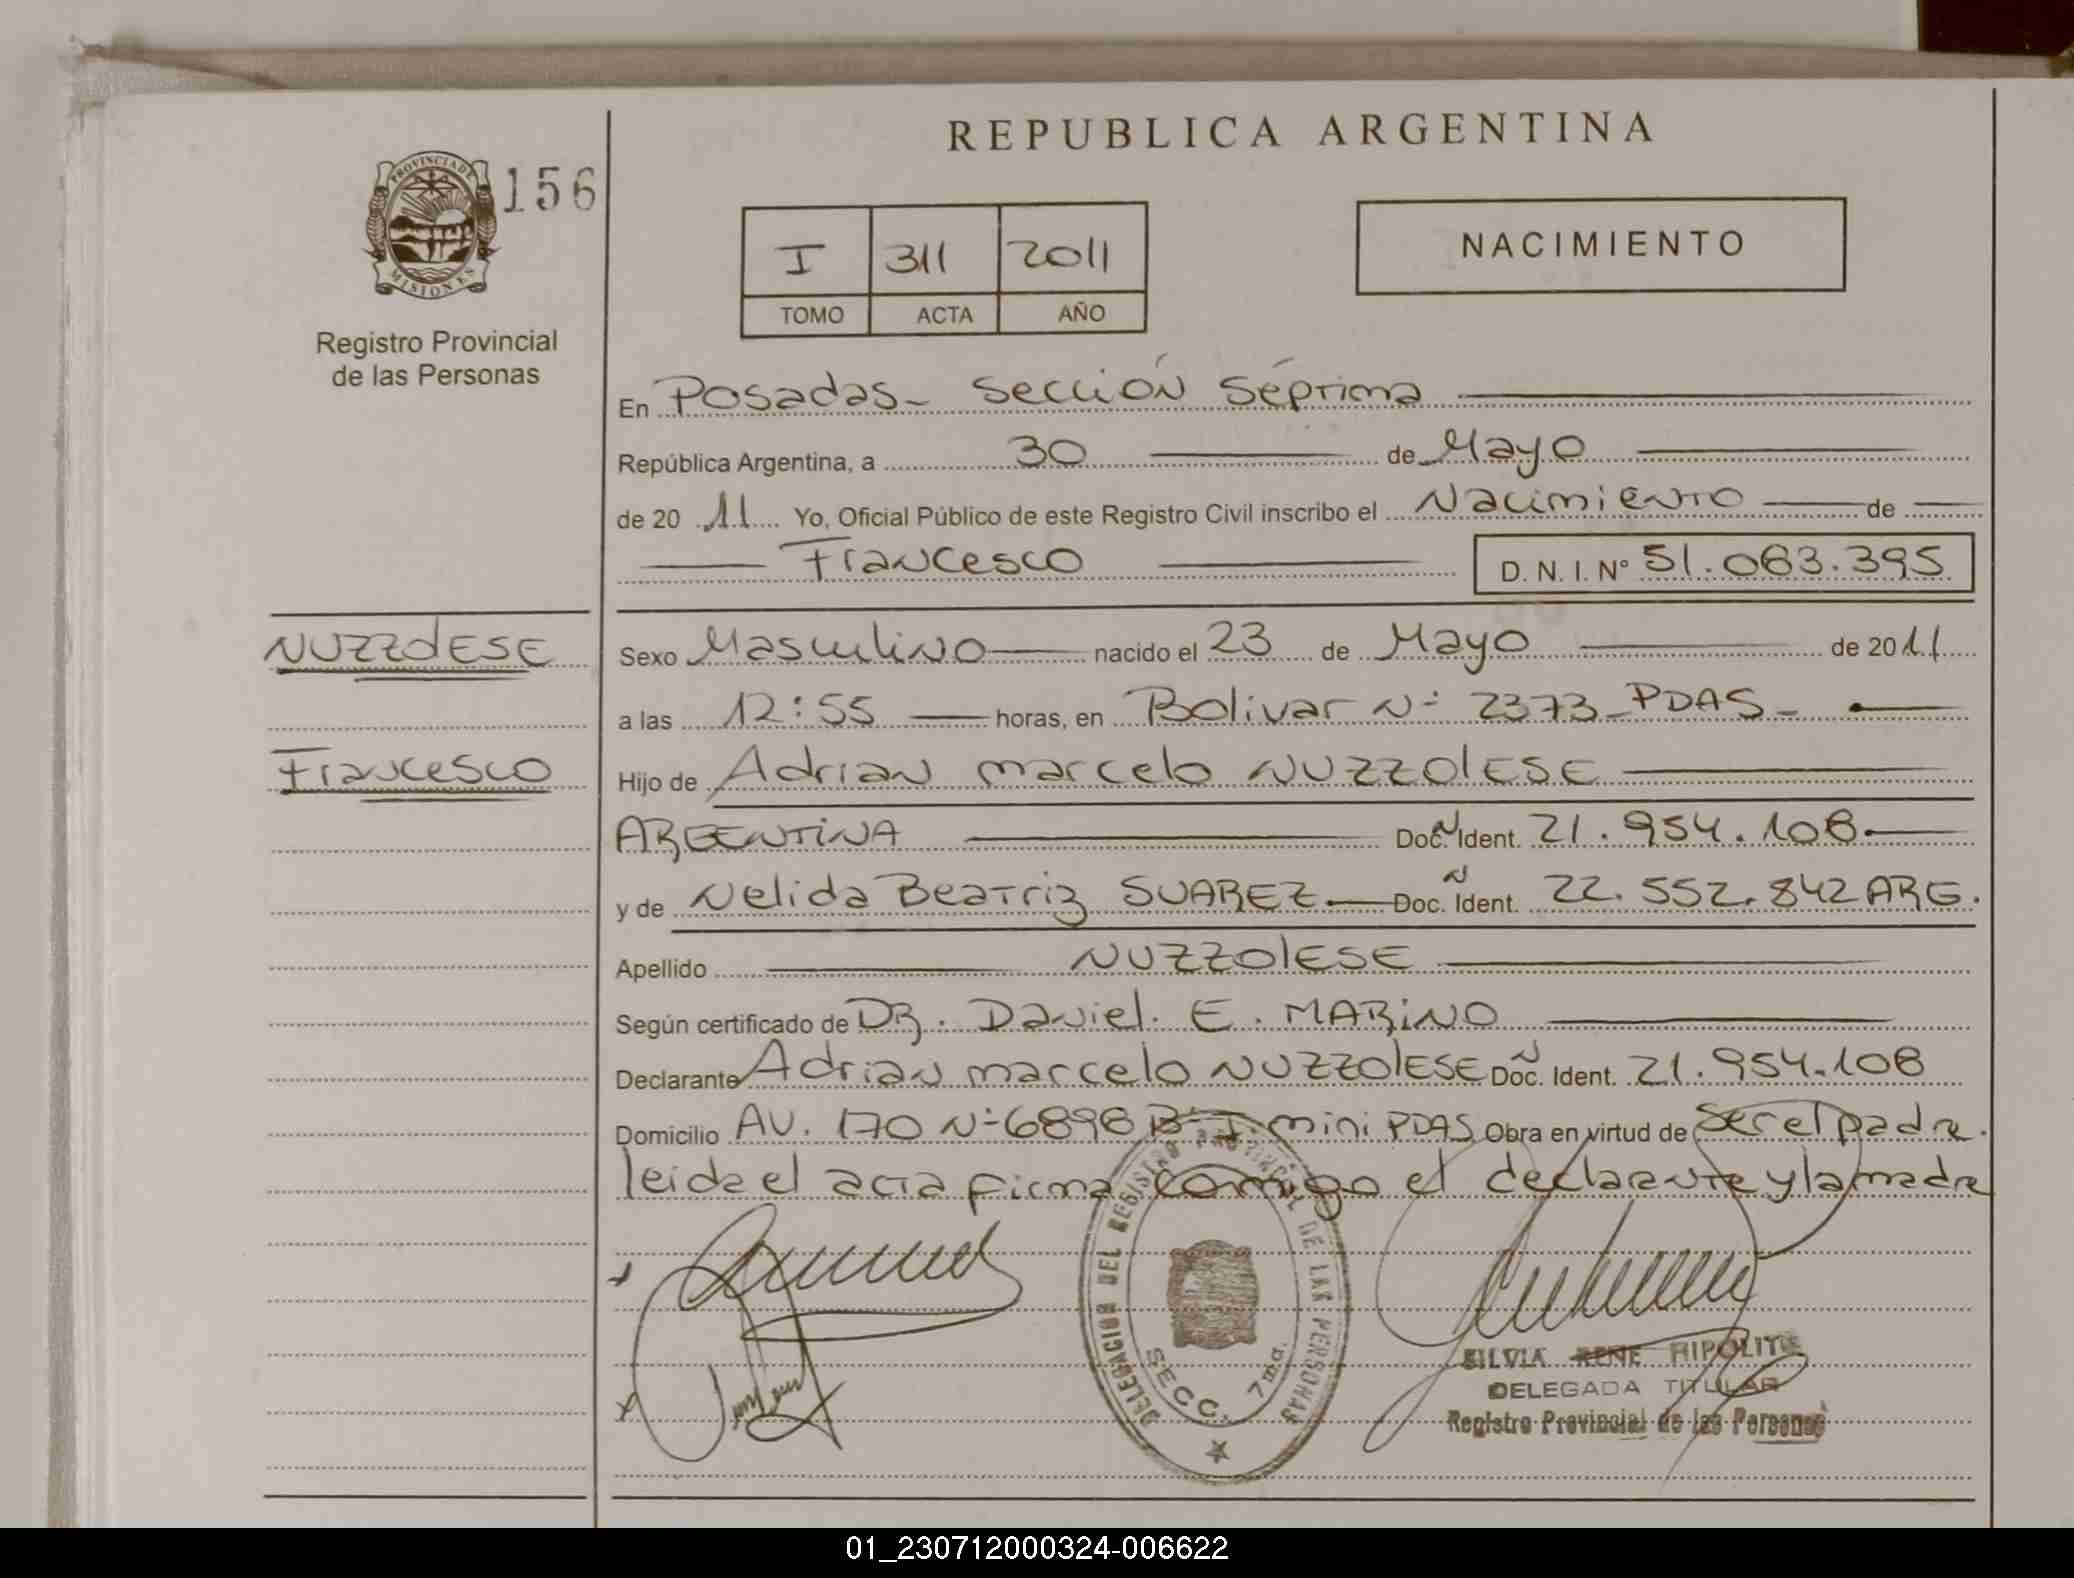 REPUBLICA ARGENTINA
PROVINCIA DE MISIONES
156
Registro Provincial
de las Personas
I 311 2011
TOMO ACTA AÑO
NACIMIENTO
En Posadas - Sección Séptima
República Argentina, a 30 de Mayo
de 20 11 Yo, Oficial Público de este Registro Civil inscribo el Nacimiento de
Francesco D. N. I. N° 51.063.395
NUZZOLESE
Francesco
Sexo Masculino nacido el 23 de Mayo de 2011
a las 12:55 horas, en Bolivar N° 2373 - PDAS -
Hijo de Adrian Marcelo NUZZOLESE
ARGENTINA Doc. N Ident. 21.954.108
y de Nelida Beatriz SUAREZ Doc. N Ident. 22.552.842 ARG.
Apellido NUZZOLESE
Según certificado de DR. Daniel. E. MARINO
Declarante Adrian Marcelo NUZZOLESE Doc. N Ident. 21.954.108
Domicilio AV. 170 N° 6898 B° I. mini PDAS Obra en virtud de Ser el padre.
leida el acta firma conmigo el declarante y la madre
DELEGACION DEL REGISTRO PROVINCIAL DE LAS PERSONAS
SECC. 7ma.
SILVIA RENE HIPOLITO
DELEGADA TITULAR
Registro Provincial de las Personas
01_230712000324-006622